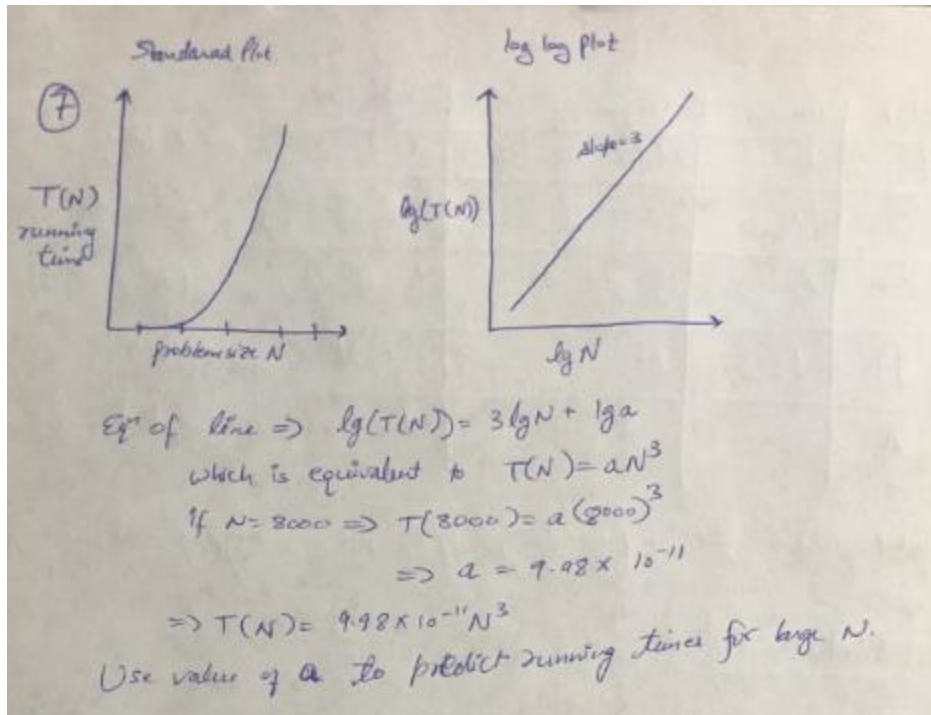 Standarad Plot
log log plot
7
T(N)
running
time
problem size N
slope=3
lg(T(N))
lg N
Eqn of line => lg(T(N)) = 3 lg N + lg a
which is equivalent to T(N) = aN³
If N = 8000 => T(8000) = a(8000)³
=> a = 9.98 × 10⁻¹¹
=> T(N) = 9.98 × 10⁻¹¹ N³
Use value of a to predict running times for large N.